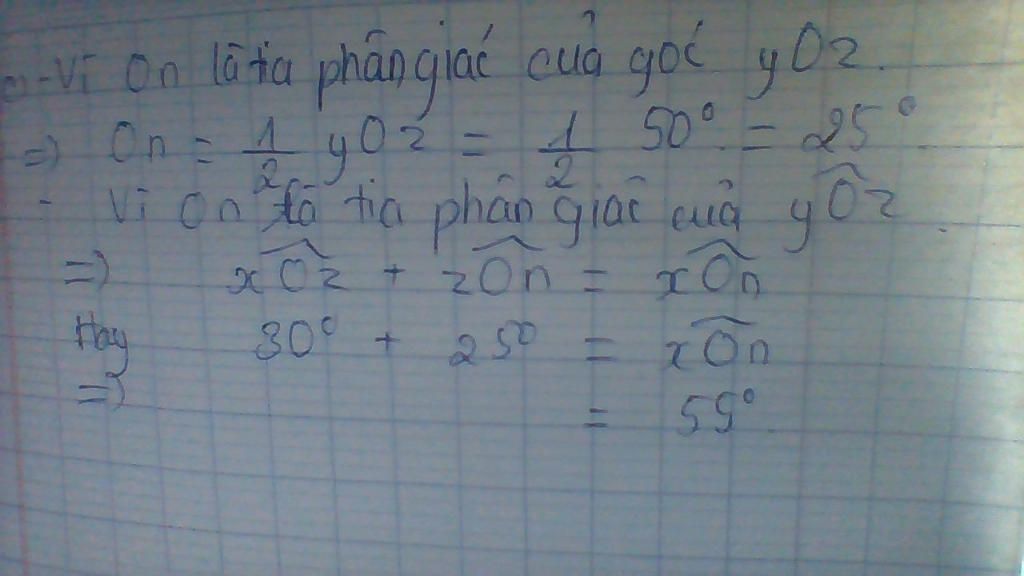 - Vì On là tia phân giác của góc yOz.
=> On = 1/2 yOz = 1/2 50° = 25°
- Vì On là tia phân giác của yOz.
=> xOz + zOn = xOn
Hay 30° + 25° = xOn
=> = 55°